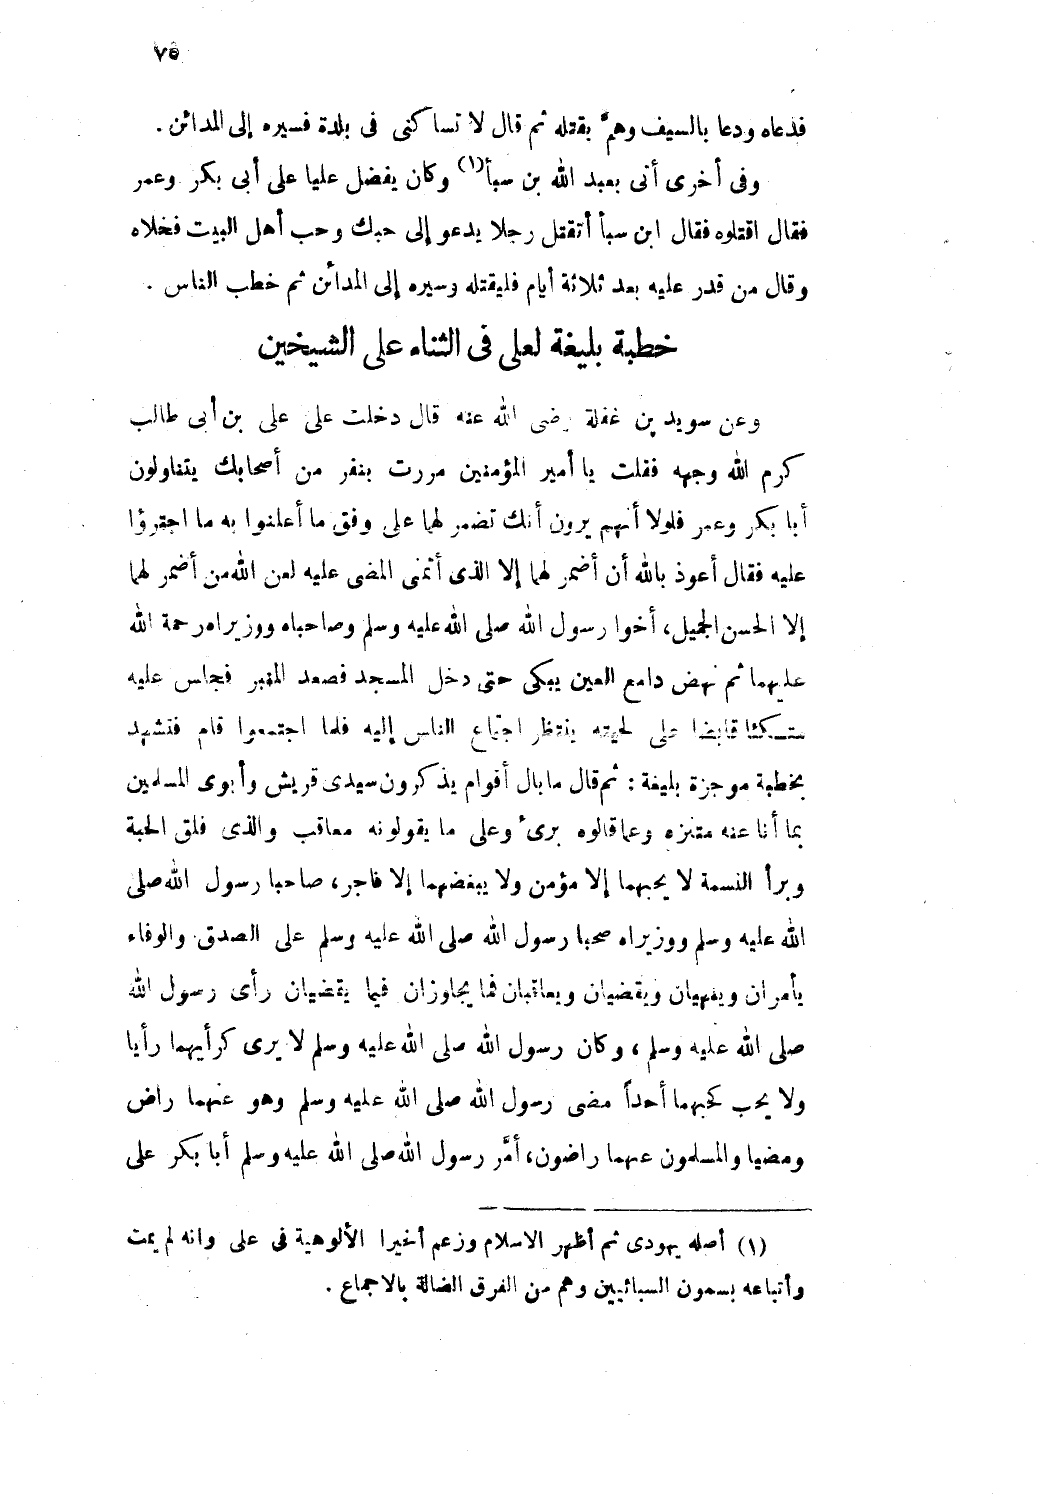 ٧٥
فدعاه ودعا بالسيف وهمّ بقتله ثم قال لا تساكنى فى بلدة فسيره إلى المدائن .
وفى أخرى أنى بعبد الله بن سبأ(١) وكان يفضل عليا على أبى بكر وعمر
فقال اقتلوه فقال ابن سبأ أتقتل رجلا يدعو إلى حبك وحب أهل البيت فخلاه
وقال من قدر عليه بعد ثلاثة أيام فليقتله وسيره إلى المدائن ثم خطب الناس .
خطبة بليغة لعلى فى الثناء على الشيخين
وعن سويد بن غفلة رضى الله عنه قال دخلت على على بن أبى طالب
كرم الله وجهه فقلت يا أمير المؤمنين مررت بنفر من أصحابك يتناولون
أبا بكر وعمر فلولا أنهم يرون أنك تضمر لهما على وفق ما أعلنوا به ما اجترؤا
عليه فقال أعوذ بالله أن أضمر لهما إلا الذى أتمنى المضى عليه لعن الله من أضمر لهما
إلا الحسن الجميل، أخوا رسول الله صلى الله عليه وسلم وصاحباه ووزيراه رحمة الله
عليهما ثم نهض دامع العين يبكى حتى دخل المسجد فصعد المنبر فجلس عليه
متكئا قابضا على لحيته ينتظر اجتماع الناس إليه فلما اجتمعوا قام فتشهد
بخطبة موجزة بليغة : ثم قال ما بال أقوام يذكرون سيدى قريش وأبوى المسلمين
بما أنا عنه متنزه وعما قالوه برىء وعلى ما يقولونه معاقب والذى فلق الحبة
وبرأ النسمة لا يحبهما إلا مؤمن ولا يبغضهما إلا فاجر، صاحبا رسول الله صلى
الله عليه وسلم ووزيراه صحبا رسول الله صلى الله عليه وسلم على الصدق والوفاء
يأمران وينهيان ويقضيان ويعاقبان فما يجاوزان فيما يقضيان رأى رسول الله
صلى الله عليه وسلم ، وكان رسول الله صلى الله عليه وسلم لا يرى كرأيهما رأيا
ولا يحب كحبهما أحداً مضى رسول الله صلى الله عليه وسلم وهو عنهما راض
ومضيا والمسلمون عنهما راضون، أمَّر رسول الله صلى الله عليه وسلم أبا بكر على
(١) أصله يهودى ثم أظهر الاسلام وزعم أخيرا الألوهية فى على وانه لم يمت
وأتباعه يسمون السبائيين وهم من الفرق الضالة بالاجماع .